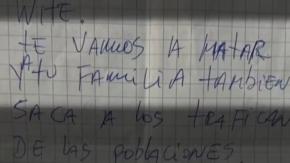 WITE.
TE VAMOS A MATAR
Y A TU FAMILIA TAMBIEN
SACA A LOS TRAFICAN
DE LAS POBLACIONES